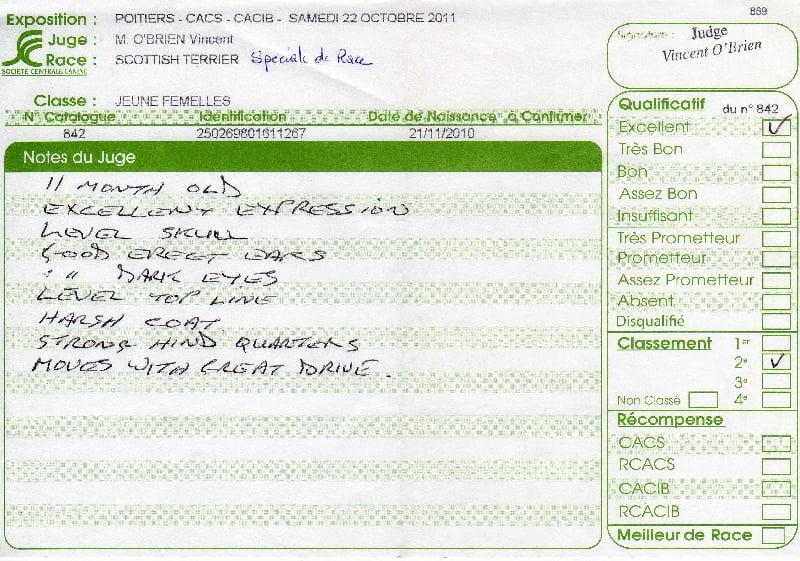 869
Exposition : POITIERS - CACS - CACIB - SAMEDI 22 OCTOBRE 2011
Juge : M. O'BRIEN Vincent
Race : SCOTTISH TERRIER Spéciale de Race
SOCIÉTÉ CENTRALE CANINE
Signature : Judge
Vincent O'Brien
Classe : JEUNE FEMELLES
N° Catalogue Identification Date de Naissance à Confirmer
842 250269801611267 21/11/2010
Notes du Juge
11 MONTH OLD
EXCELLENT EXPRESSION
LEVEL SKULL
GOOD ERECT EARS
" " DARK EYES
LEVEL TOP LINE
HARSH COAT
STRONG HIND QUARTERS
MOVES WITH GREAT DRIVE.
Qualificatif du n° 842
Excellent ✓
Très Bon
Bon
Assez Bon
Insuffisant
Très Prometteur
Prometteur
Assez Prometteur
Absent
Disqualifié
Classement 1er
2e ✓
3e
Non Classé 4e
Récompense
CACS
RCACS
CACIB
RCACIB
Meilleur de Race